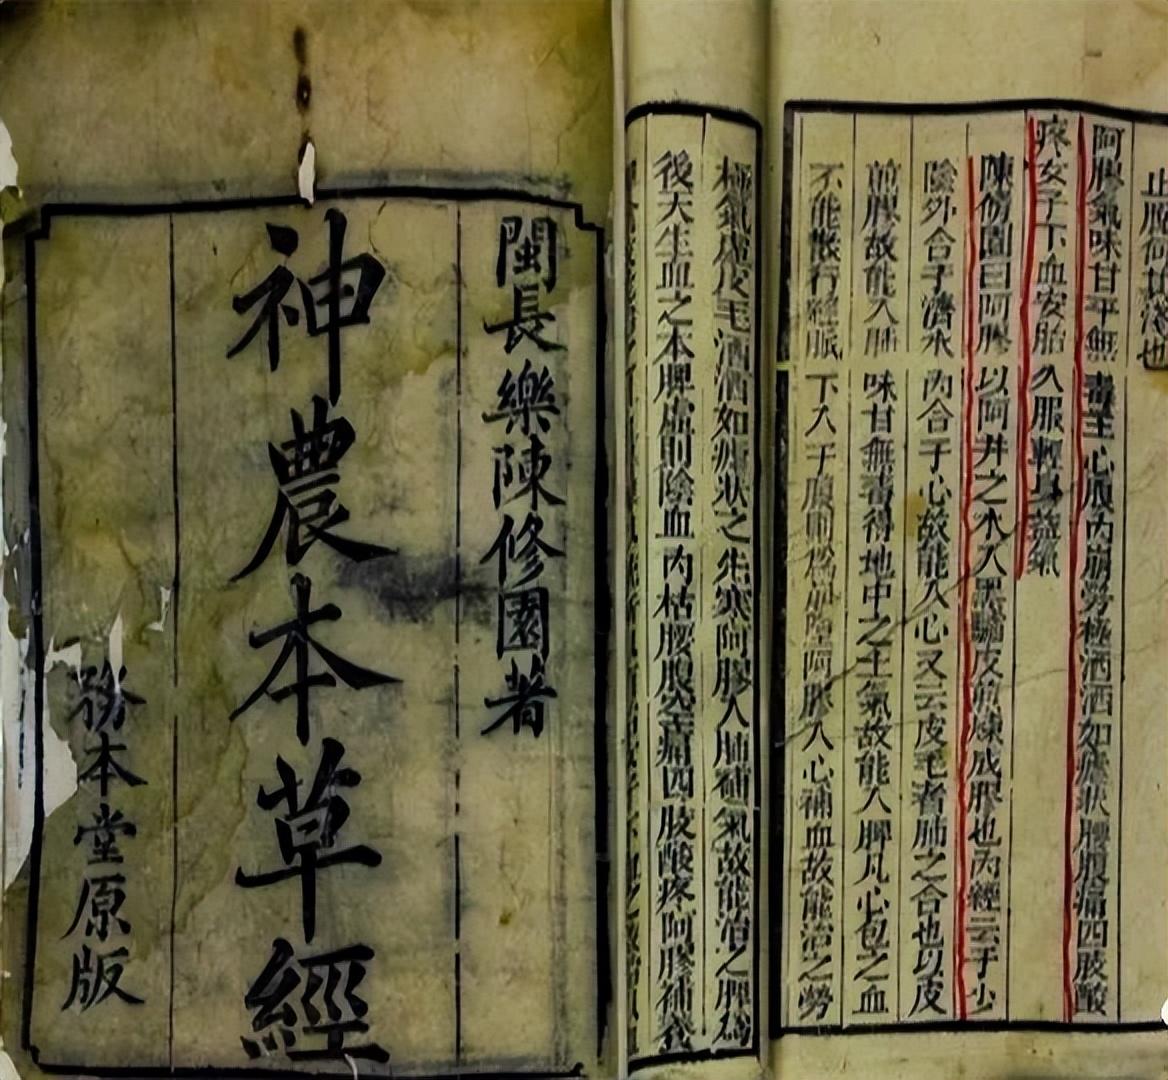 閩長樂陳修園著
神農本草經
務本堂原版
止腥何甘淡也
阿膠氣味甘平無毒主心腹內崩勞極洒洒如瘧狀腰腹痛四肢酸
疼女子下血安胎久服輕身益氣
陳修園曰阿膠以阿井之水入黑驢皮煎煉成膠也內經云手少
陰外合于濟水內合于心故能入心又云皮毛者肺之合也以皮
煎膠故能入肺味甘無毒得地中之土氣故能入脾凡心包之血
不能散行經脈下入于腹則為崩墮阿膠入心補血故能治之勞
極氣虛皮毛洒洒如瘧狀之先寒阿膠入肺補氣故能治之脾為
後天生血之本脾虛則陰血內枯腰腹空痛四肢酸疼阿膠補養